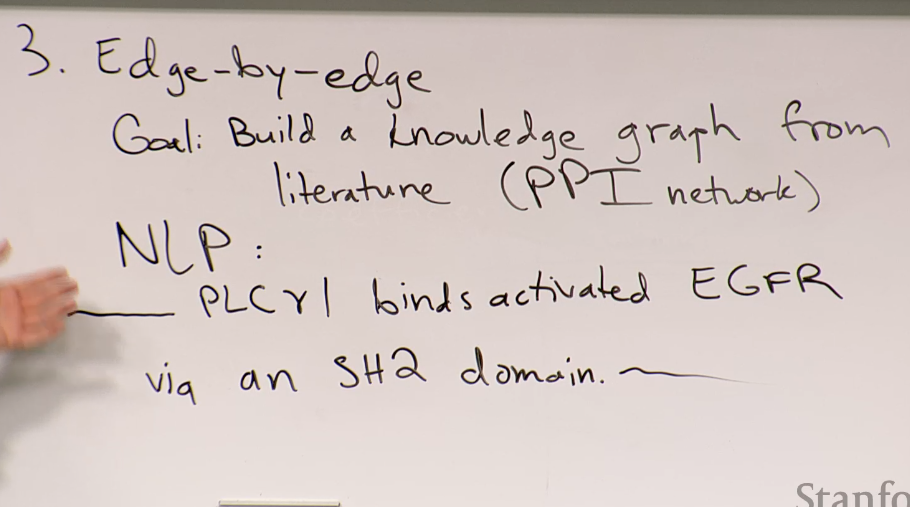 3. Edge-by-edge
Goal: Build a knowledge graph from
literature (PPI network)
NLP:
PLCγ1 binds activated EGFR
via an SH2 domain.
Stanfo